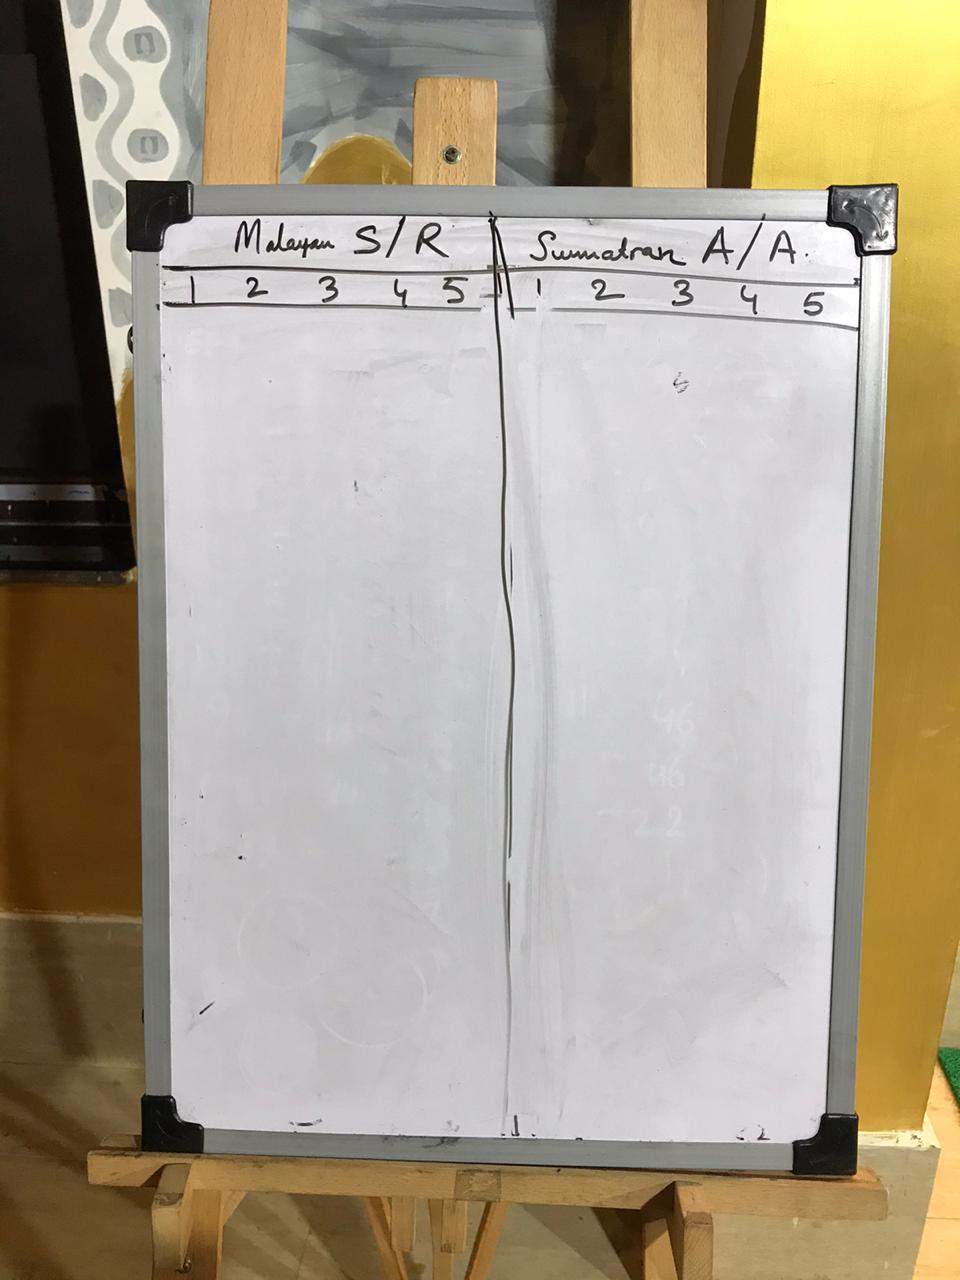 Malayan S/R
Sumatran A/A.
1 2 3 4 5
1 2 3 4 5
46
46
22